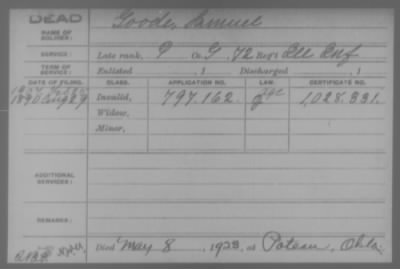 DEAD
Goode, Samuel
NAME OF SOLDIER:
SERVICE: Late rank, P Co. G, 72 Reg't Ill Inf
TERM OF SERVICE: Enlisted , 1 Discharged , 1
DATE OF FILING. CLASS. APPLICATION NO. LAW. CERTIFICATE NO.
1890 Aug 29 Invalid, 797.162. 1,028.331.
Widow,
Minor,
ADDITIONAL SERVICES:
REMARKS:
Died May 8, 1928, at Poteau, Okla.